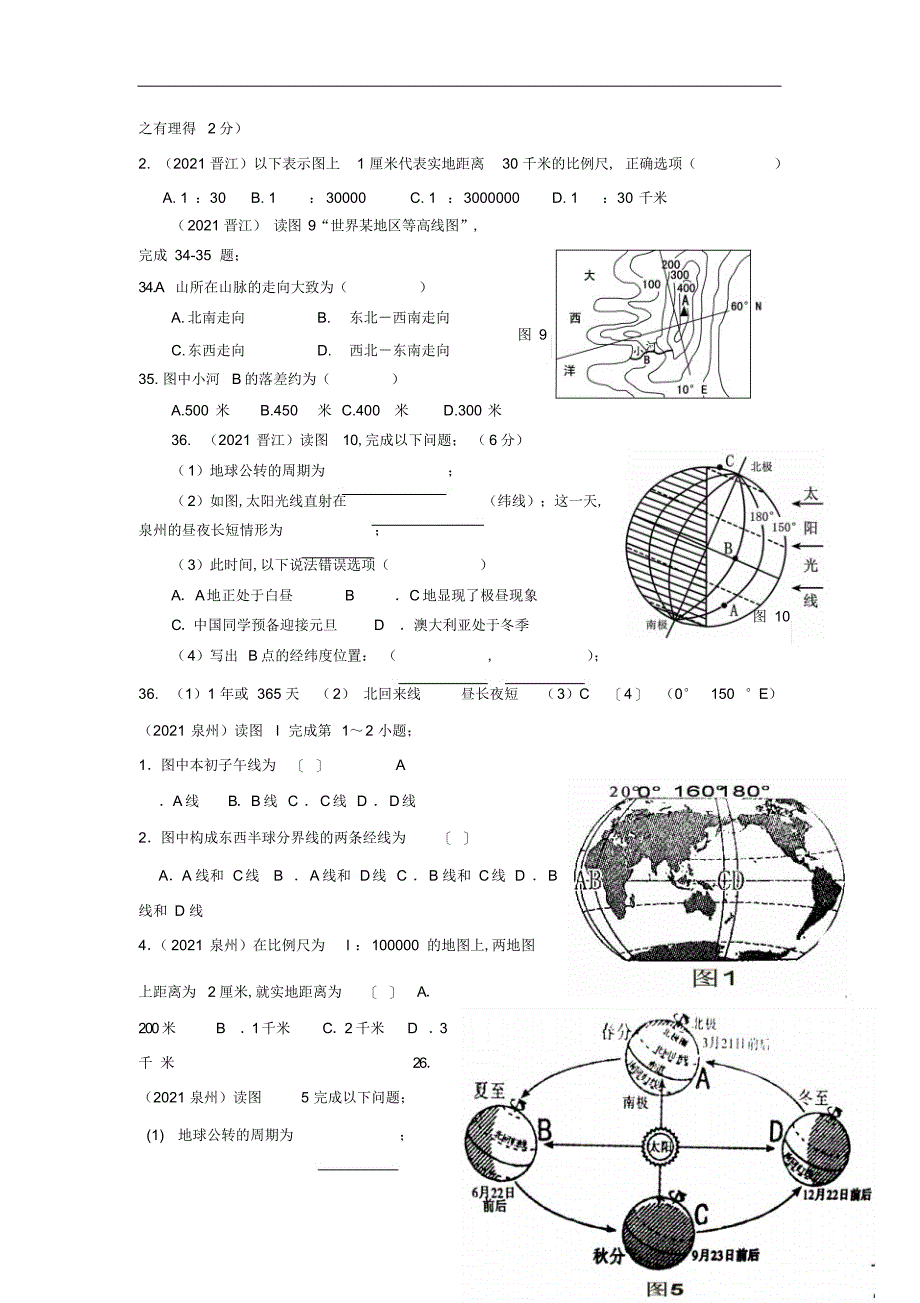 之有理得 2分）
2. （2021 晋江）以下表示图上 1 厘米代表实地距离 30 千米的比例尺, 正确选项（ ）
A. 1 ：30 B. 1 ：30000 C. 1 ：3000000 D. 1 ：30 千米
（2021 晋江） 读图 9“世界某地区等高线图”,
完成 34-35 题;
34.A 山所在山脉的走向大致为（ ）
A. 北南走向 B. 东北－西南走向
C. 东西走向 D. 西北－东南走向
图 9
大
西
洋
100
200
300
400
A
60° N
小
河
B
10° E
35. 图中小河 B 的落差约为（ ）
A.500 米 B.450 米 C.400 米 D.300 米
36. （2021 晋江）读图 10,完成以下问题; （6 分）
（1）地球公转的周期为 ;
（2）如图,太阳光线直射在 （纬线）; 这一天,
泉州的昼夜长短情形为 ;
（3）此时间,以下说法错误选项（ ）
A. A地正处于白昼 B ．C 地显现了极昼现象
C. 中国同学预备迎接元旦 D ．澳大利亚处于冬季
（4）写出 B 点的经纬度位置: （ , ）;
C
北极
太
阳
光
线
180°
150°
B
A
南极
图 10
36. （1）1 年或 365 天 （2） 北回来线 昼长夜短 （3）C 〔4〕 （0° 150 °E）
（2021 泉州）读图 I 完成第 1～2 小题;
1．图中本初子午线为 〔 〕 A
．A 线 B．B 线 C ．C 线 D ．D 线
2．图中构成东西半球分界线的两条经线为 〔 〕
A．A 线和 C线 B ．A 线和 D线 C ．B 线和 C 线 D ．B
线和 D 线
20°0° 160°180°
AB
CD
图1
4．（2021 泉州）在比例尺为 I：100000 的地图上,两地图
上距离为 2 厘米,就实地距离为 〔 〕 A．
200 米 B ．1千米 C．2 千米 D ．3
千 米 26.
（2021 泉州）读图 5 完成以下问题;
(1) 地球公转的周期为 ;
春分
北极
3月21日前后
A
南极
夏至
B
6月22日
前后
太阳
冬至
D
12月22日前后
C
秋分
9月23日前后
图5